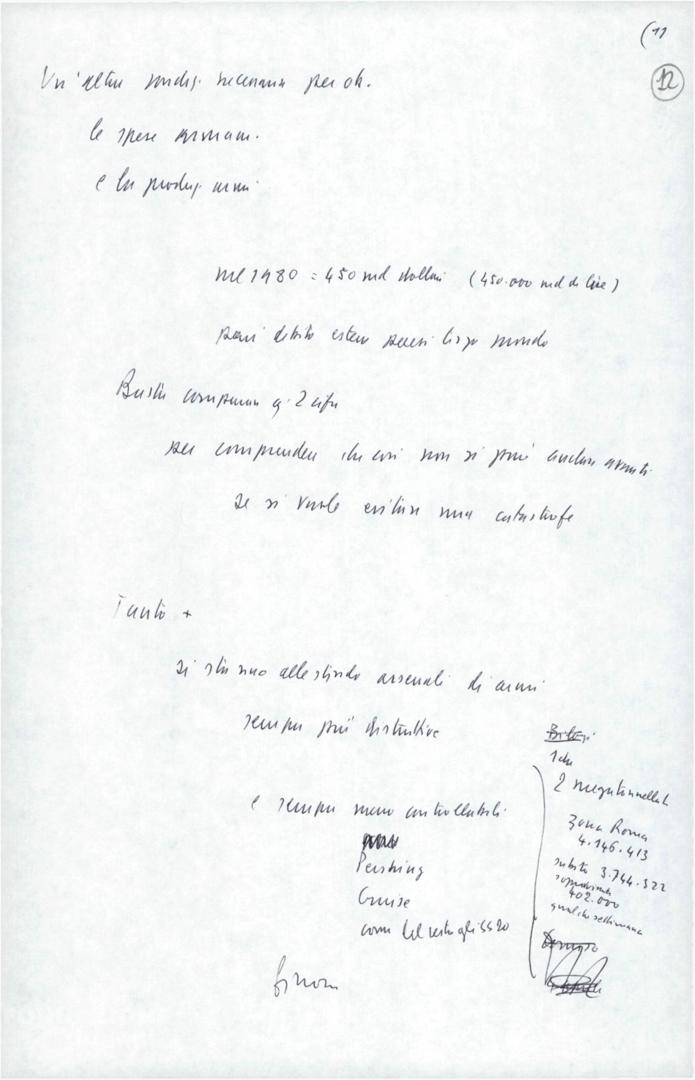 (11
12
Un'altra condiz. necessaria per ob.
le spese armam.
e la produz. armi
nel 1980 = 450 md dollari (450.000 md di lire)
pari debito estero paesi terzo mondo
Basta comparare q. 2 cifre
per comprendere che così non si può andare avanti
se si vuole evitare una catastrofe
Tanto +
si stanno allestendo arsenali di armi
sempre più distruttive
e sempre meno controllabili
Pershing
Cruise
come del resto gli SS20
2 megatonnellate
zona Roma
4.146.413
subito 3.744.522
402.000
qualche settimana